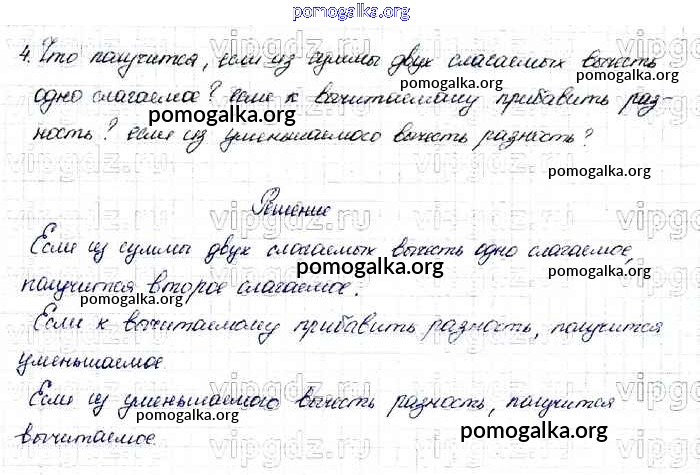 pomogalka.org
4. Что получится, если из суммы двух слагаемых вычесть
pomogalka.org
одно слагаемое? если к вычитаемому прибавить раз-
pomogalka.org
ность? если из уменьшаемого вычесть разность?
pomogalka.org
Решение
vipgdz.ru
Если из суммы двух слагаемых вычесть одно слагаемое,
pomogalka.org
pomogalka.org
получится второе слагаемое.
pomogalka.org
Если к вычитаемому прибавить разность, получится
уменьшаемое
Если из уменьшаемого вычесть разность, получится
pomogalka.org
pomogalka.org
вычитаемое.
pomogalka.org